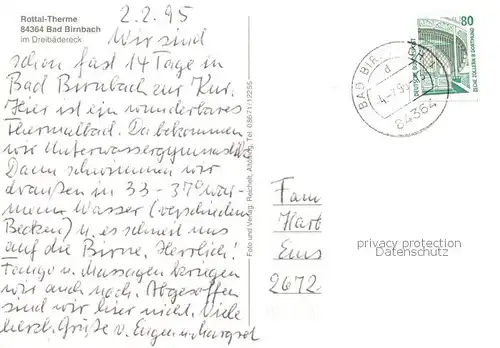 Rottal-Therme
84364 Bad Birnbach
im Dreibädereck
2.2.95
Wir sind
schon fast 14 Tage in
Bad Birnbach zur Kur.
Hier ist ein wunderbares
Thermalbad. Da bekommen
wir Unterwassergymnastik.
Dann schwimmen wir
draußen in 33-37° war-
mem Wasser (verschiedene
Becken) u. es schneit uns
auf die Birne. Herrlich!
Fango u. Massagen kriegen
wir auch noch. Abgesoffen
sind wir hier nicht. Viele
herzl. Grüße v. Eugen u. Margret
Foto und Verlag: Reichelt, Tel. 08671/12255
80
DEUTSCHE BUNDESPOST
ZECHE ZOLLERN II DORTMUND
BAD BIRNBACH
d
84364
Fam
Hart
Ems
2672
privacy protection
Datenschutz